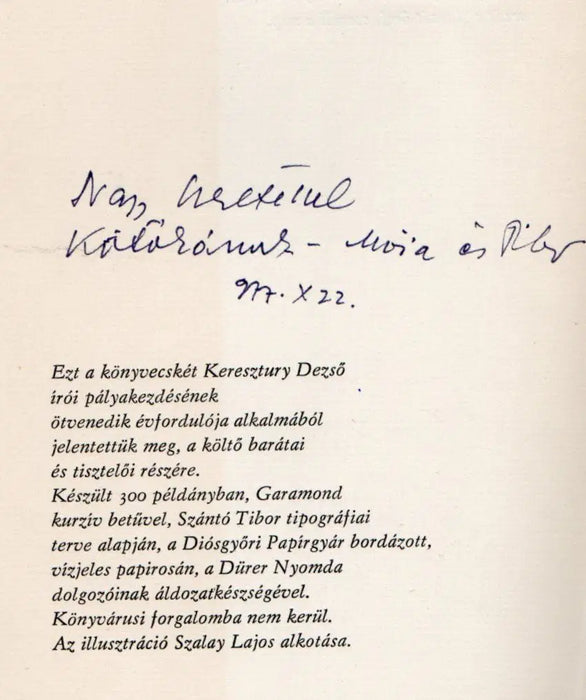 Nagy szeretettel
– és
X 22.
Ezt a könyvecskét Keresztury Dezső
írói pályakezdésének
ötvenedik évfordulója alkalmából
jelentettük meg, a költő barátai
és tisztelői részére.
Készült 300 példányban, Garamond
kurzív betűvel, Szántó Tibor tipográfiai
terve alapján, a Diósgyőri Papírgyár bordázott,
vízjeles papirosán, a Dürer Nyomda
dolgozóinak áldozatkészségével.
Könyvárusi forgalomba nem kerül.
Az illusztráció Szalay Lajos alkotása.